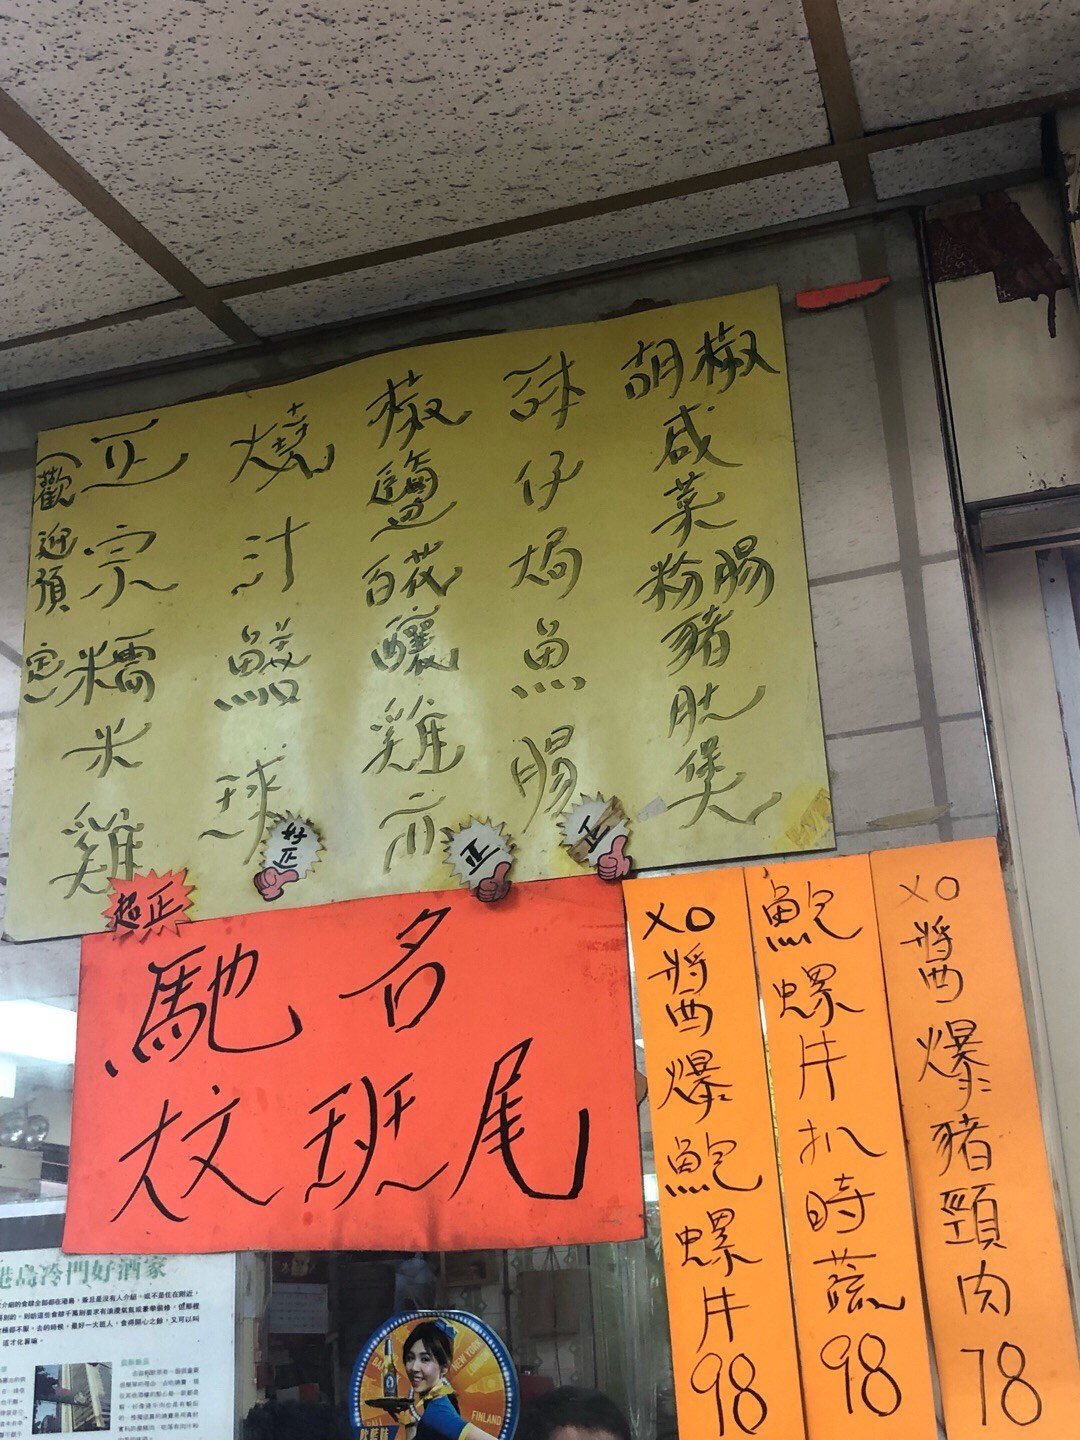 胡椒咸菜粉腸豬肚煲
砵仔焗魚腸
椒鹽百花釀雞亦
燒汁鱔球
正宗糯米雞
(歡迎預定)
好正
正
正
超正
馳名
大文班尾
XO醬爆豬頸肉78
鮑螺片扒時蔬98
XO醬爆鮑螺片98
港島冷門好酒家
NEW YORK
FINLAND
BALI